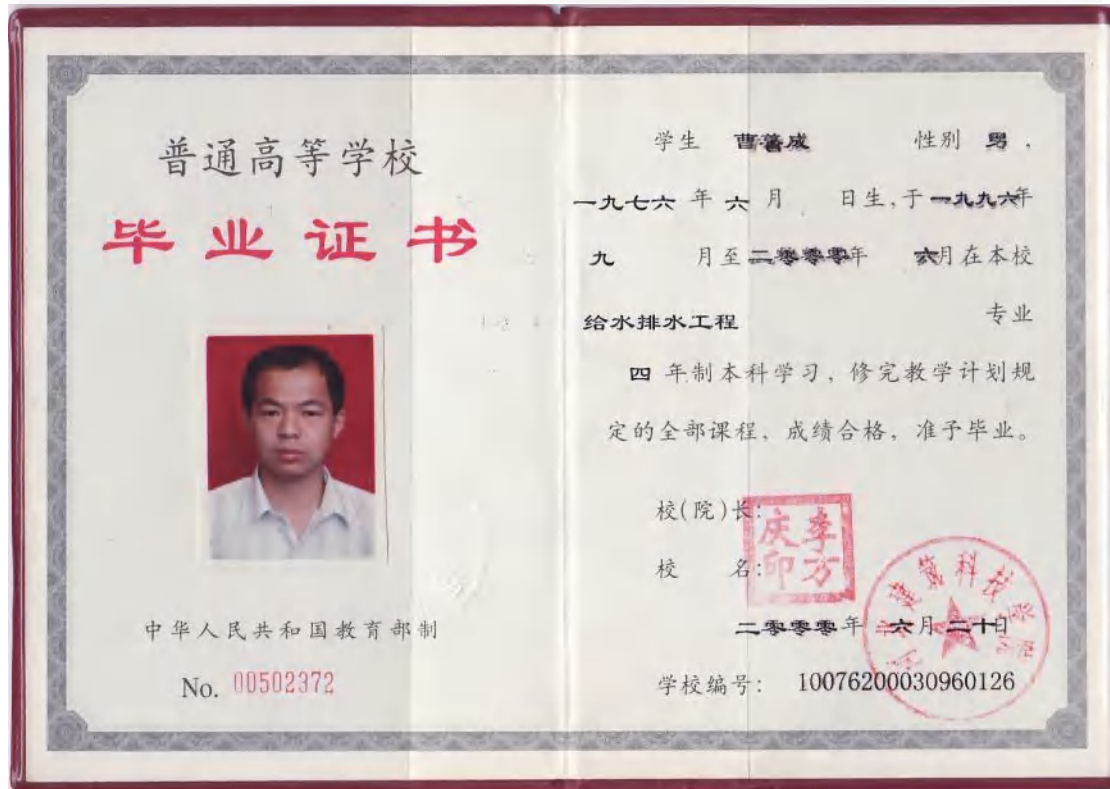 普通高等学校
毕业证书
中华人民共和国教育部制
No. 00502372
学生 曹善成 性别 男，
一九七六 年 六 月 日生，于一九九六年
九 月至二零零零年 六月在本校
给水排水工程 专业
四 年制本科学习，修完教学计划规
定的全部课程，成绩合格，准予毕业。
校(院)长：
李方庆印
校 名：
河北建筑科技学院
二零零零年 六月二十日
学校编号： 10076200030960126